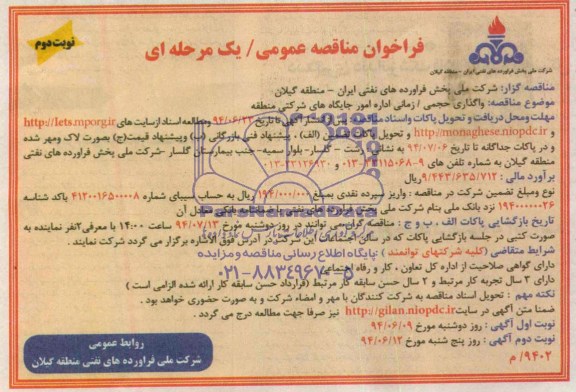 نوبت دوم
فراخوان مناقصه عمومی / یک مرحله ای
شرکت ملی پخش فراورده های نفتی ایران - منطقه گیلان
مناقصه گزار: شرکت ملی پخش فراورده های نفتی ایران - منطقه گیلان
موضوع مناقصه: واگذاری حجمی / زمانی اداره امور جایگاه های شرکتی منطقه
مهلت ومحل دریافت و تحویل پاکات واسناد مناقصه: پس از انتشار آگهی تا تاریخ ۹۴/۰۶/۲۲ ومطالعه اسناد ازسایت های http://iets.mporg.ir
و http://monaghese.niopdc.ir و تحویل پاکات تضمین (الف) ، پیشنهاد فنی بازرگانی (ب) وپیشنهاد قیمت(ج) بصورت لاک ومهر شده
و در پاکات جداگانه تا تاریخ ۹۴/۰۷/۰۶ به نشانی رشت - گلسار- بلوار سمیه- جنب بیمارستان گلسار -شرکت ملی پخش فراورده های نفتی
منطقه گیلان به شماره تلفن های ۹-۳۳۱۱۵۰۶۸-۰۱۳ و ۳۳۱۲۶۹۳۰-۰۱۳
برآورد مالی : ۹/۴۴۳/۶۳۵/۷۱۲ریال
نوع ومبلغ تضمین شرکت در مناقصه : واریز سپرده نقدی بمبلغ ۱۹۴/۰۰۰/۰۰۰ ریال به حساب سیبای شماره ۴۱۳۰۰۱۶۵۰۰۰۸ باکد شناسه
۱۹۴۰۰۰۰۰۲۶ نزد بانک ملی بنام شرکت ملی پخش فراورده های نفتی
تاریخ بازگشایی پاکات الف ، ب و ج : مناقصه گران می توانند در روز دوشنبه مورخ ۹۴/۰۷/۱۳ ساعت ۱۴:۰۰ با معرفی ۲نفر نماینده به
صورت کتبی در جلسه بازگشایی پاکات که در سالن اجتماعات این شرکت در آدرس فوق الاشاره برگزار می گردد شرکت نمایند .
شرایط متقاضی (کلیه شرکتهای توانمند) :
پایگاه اطلاع رسانی مناقصه و مزایده
دارای گواهی صلاحیت از اداره کل تعاون ، کار و رفاه اجتماعی
۰۲۱-۸۸۳۴۹۶۷۰-۵
دارای ۳ سال تجربه کار مرتبط و ۲ سال حسن سابقه کار مرتبط (قرارداد حسن سابقه کار ارائه شده الزامی است )
نکته مهم : تحویل اسناد مناقصه به شرکت کنندگان با مهر و امضاء شرکت و به صورت حضوری خواهد بود .
ضمنا متن آگهی در سایت http://gilan.niopdc.ir نیز صرفا جهت مطالعه درج می گردد .
نوبت اول آگهی : روز دوشنبه مورخ ۹۴/۰۶/۰۹
نوبت دوم آگهی : روز پنج شنبه مورخ ۹۴/۰۶/۱۲
۹۴۰۲/ م
روابط عمومی
شرکت ملی فراورده های نفتی منطقه گیلان